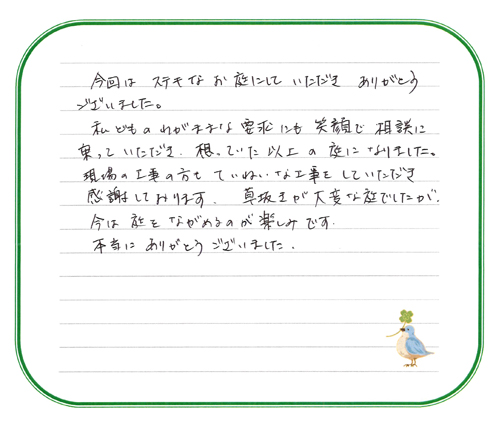 今回は ステキな お庭にして いただき ありがとう
ございました。
私どものわがままな要求にも 笑顔で 相談に
乗って いただき、想っていた以上の 庭に なりました。
現場の工事の方も ていねいな工事をしていただき
感謝しております。 草抜きが大変な庭でしたが、
今は 庭を ながめるのが 楽しみです。
本当に ありがとう ございました。